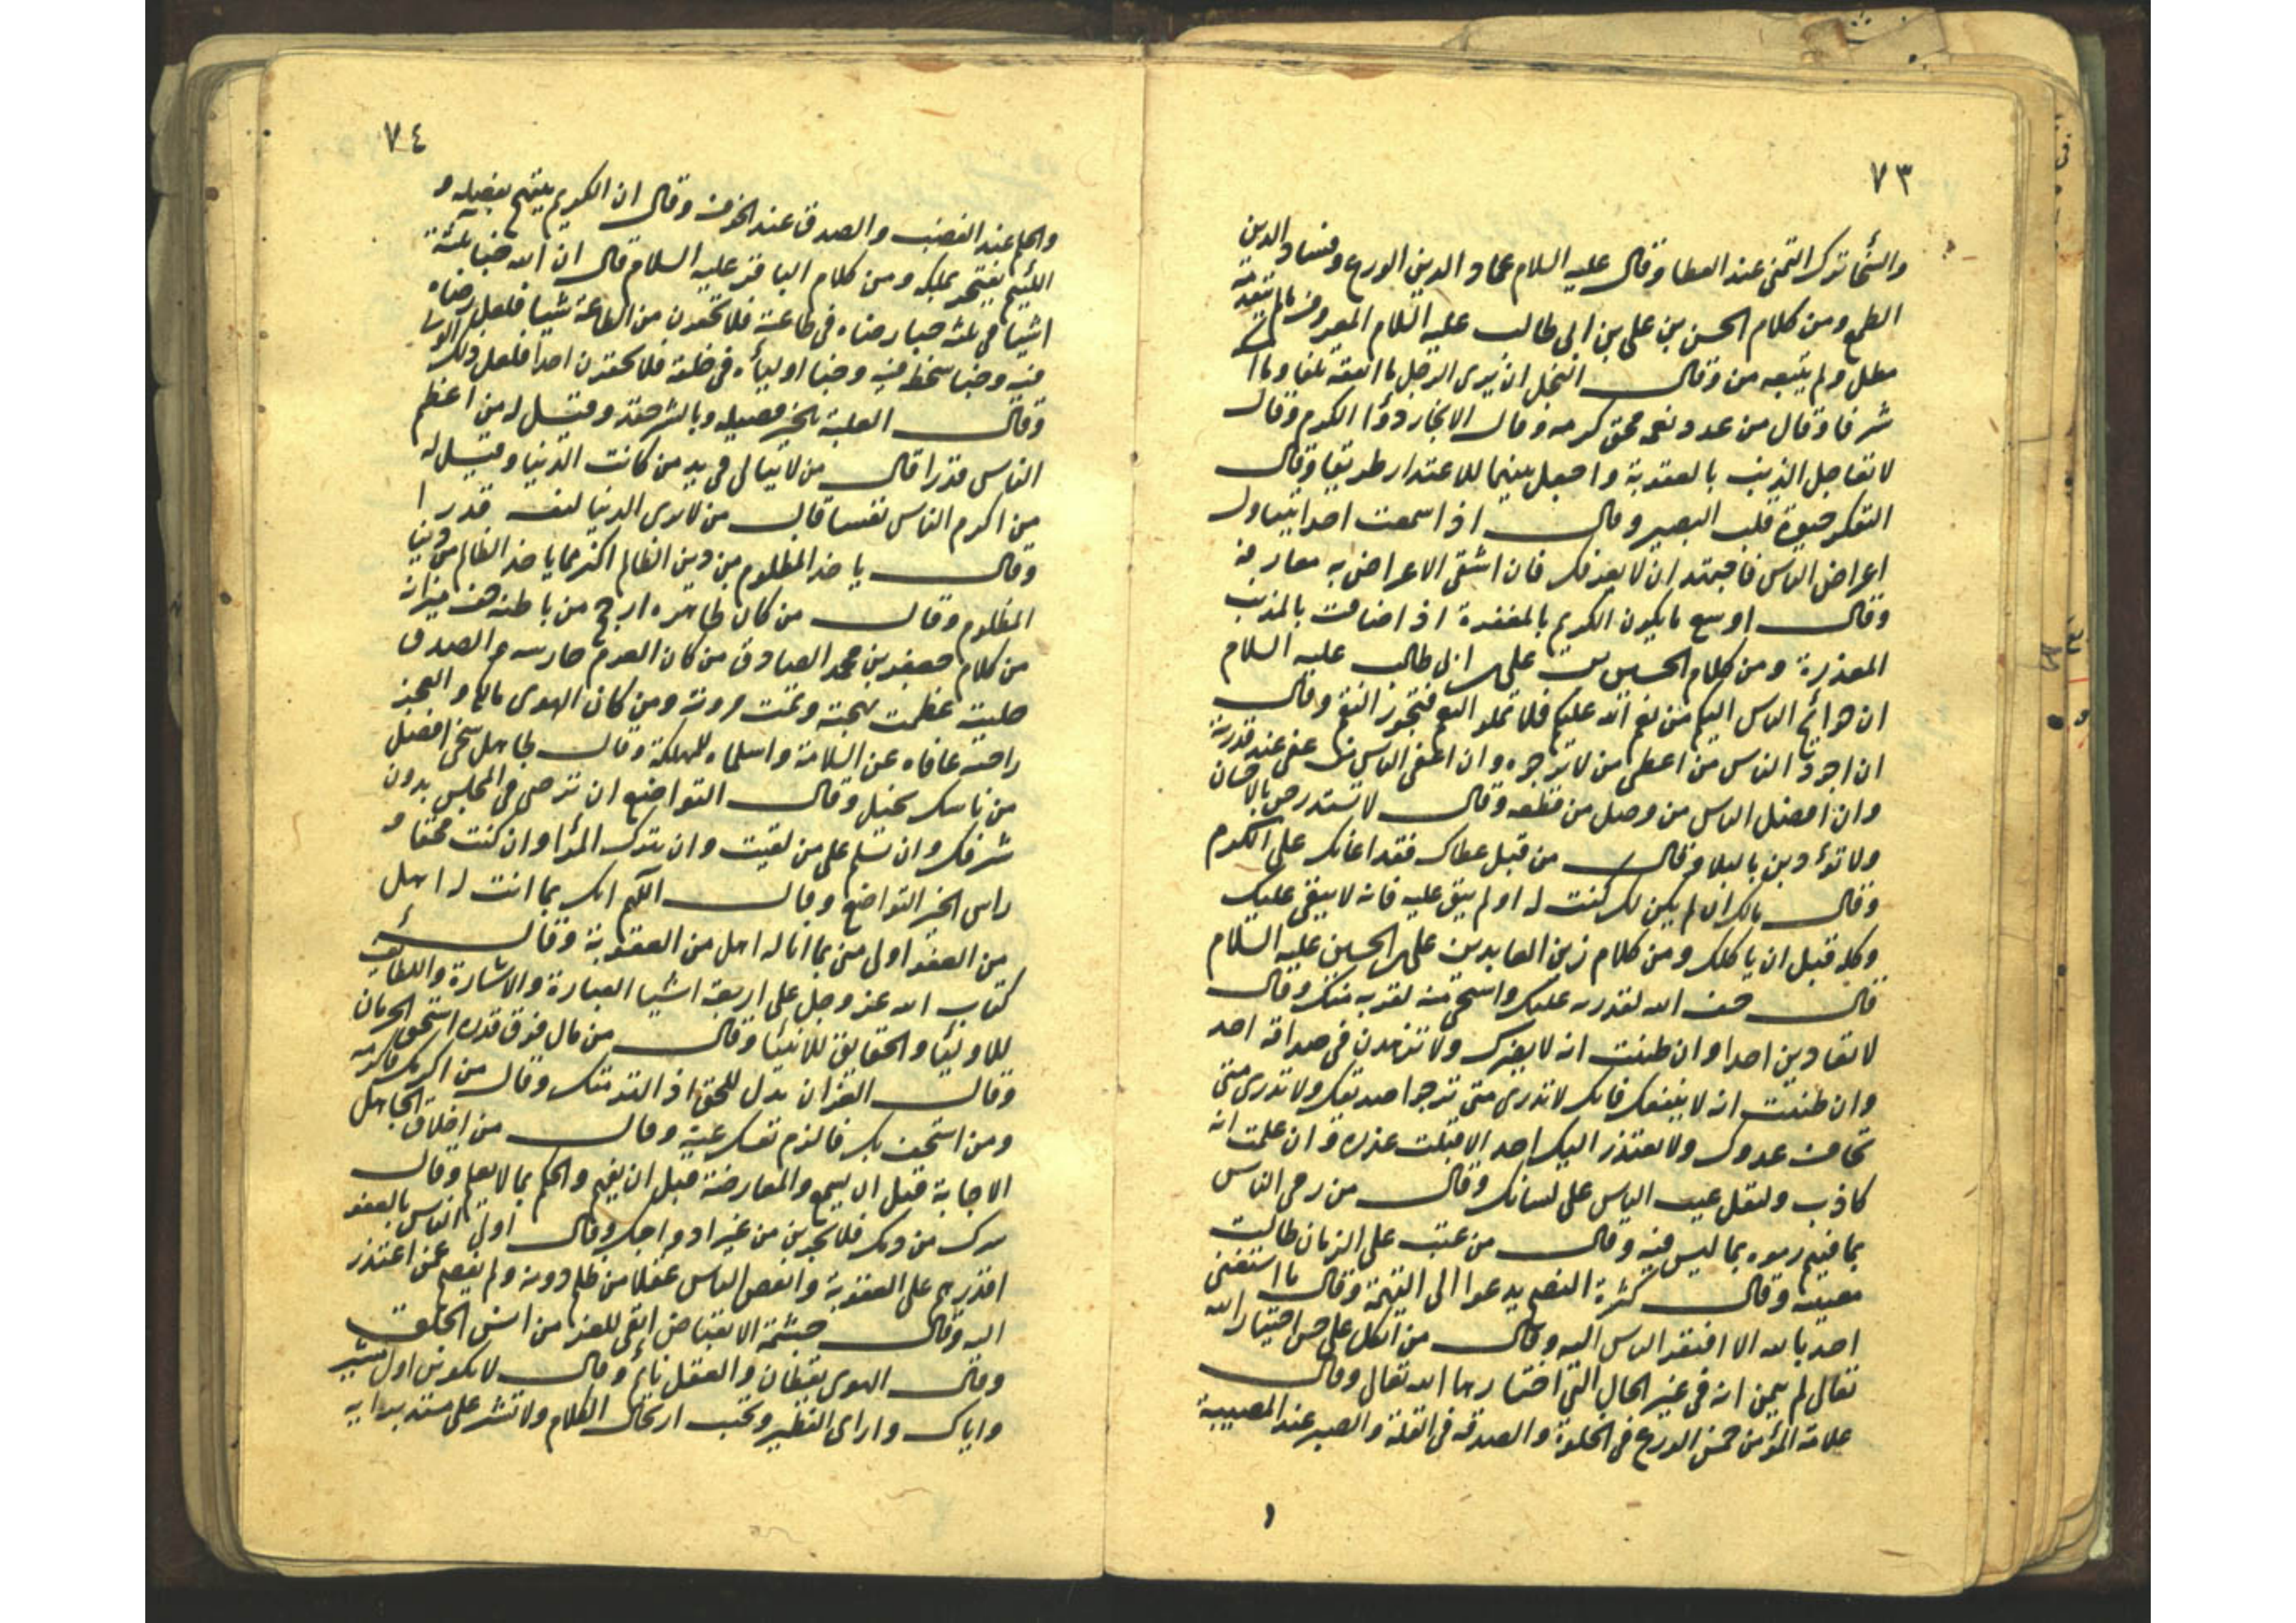 ٧٣
والسخا ترك التمنى عند العطا وقال عليه السلام عماد الدين الورع وفساد الدين
الطمع ومن كلام الحسن بن على بن ابى طالب عليه السلام المعروف ما لم تتقدمه
مطل ولم يتبعه من وقال البخل ان يرى الرجل ما انفقه تلفا وما امسكه
شرفا وقال من عدد نعمه محق كرمه وقال الانجاز دوا الكرم وقال
لا تعاجل الذنب بالعقوبة واجعل بينهما للاعتذار طريقا وقال
التفكر حيوة قلب البصير وقال اذا سمعت احدا يتناول
اعراض الناس فاجتهد ان لا يعرفك فان اشقى الاعراض به معارفه
وقال اوسع ما يكون الكريم بالمغفرة اذا ضاقت بالمذنب
المعذرة ومن كلام الحسين بن على بن ابى طالب عليه السلام
ان حوائج الناس اليكم من نعم الله عليكم فلا تملوا النعم فتجوز النقم وقال
ان اجود الناس من اعطى من لا يرجوه وان اعفى الناس من عفى عند قدرته
وان افضل الناس من وصل من قطعه وقال لا تستدرجن بالاحسان
ولا تؤدبن بالبلا وقال من قبل عطاك فقد اعانك على الكرم
وقال مالك ان لم يكن لك كنت له اولم يبق عليه فانه لا يبقى عليك
وكله قبل ان ياكلك ومن كلام زين العابدين على بن الحسين عليه السلام
قال خف الله لقدرته عليك واستحى منه لقربه منك وقال
لا تعادين احدا وان ظننت انه لا يضرك ولا تزهدن فى صداقة احد
وان ظننت انه لا ينفعك فانك لا تدرى متى ترجو صديقك ولا تدرى متى
تخاف عدوك ولا يعتذر اليك احد الا قبلت عذره وان علمت انه
كاذب وليقل عيب الناس على لسانك وقال من رمى الناس
بما فيهم رموه بما ليس فيه وقال من عتب على الزمان طالت
معتبته وقال كثرة النصح يدعوا الى التهمة وقال ما استغنى
احد بالله الا افتقر الناس اليه وقال من اتكل على حسن اختيار الله
تعالى لم يتمن انه فى غير الحال التى اختارها الله تعالى وقال
علامة المؤمن خمس الورع فى الخلوة والصدقه فى القلة والصبر عند المصيبة
٧٤
والحلم عند الغضب والصدق عند الخوف وقال ان الكريم يبتهج بفضله و
اللئيم يفتخر بملكه ومن كلام الباقر عليه السلام قال ان الله خبا ثلثة
اشيا فى ثلثة خبا رضاه فى طاعته فلا تحقرن من الطاعة شيا فلعل رضاه
فيه وخبا سخطه فيه وخبا اوليأه فى خلقه فلا تحقرن احدا فلعل ذلك الولى
وقال الغلبة بالخير فضيله وبالشر وقيل له من اعظم
الناس قدرا قال من لا يبالى فى يد من كانت الدنيا وقيل له
من اكرم الناس نفسا قال من لا يرى الدنيا لنفسه قدرا
وقال ياخذ المظلوم من دين الظالم اكثر مما ياخذ الظالم من دنيا
المظلوم وقال من كان ظاهره ارجح من باطنه خف ميزانه
من كلام جعفر بن محمد الصادق من كان الحزم حارسه والصدق
حليته عظمت بهجته وتمت مروته ومن كان الهوى مالكه والعجز
راحته عاقاه عن السلامة واسلماه للهلكة وقال جاهل سخى افضل
من ناسك بخيل وقال التواضع ان ترضى فى المجلس بدون
شرفك وان تسلم على من لقيت وان تترك المرا وان كنت محقا و
راس الخير التواضع وقال اللهم انك بما انت له اهل
من العفو اولى منى بما انا له اهل من العقوبة وقال
كتاب الله عز وجل على اربعة اشيا العبارة والاشارة واللطائف
للاوليأ والحقايق للانبيا وقال من سال فوق قدره استحق الحرمان
وقال العز ان تذل للحق اذا لزمك وقال من اكرمك فاكرمه
ومن استخف بك فاكرم نفسك عنه وقال من اخلاق الجاهل
الاجابة قبل ان يسمع والمعارضة قبل ان يفهم والحكم بما لا يعلم وقال
سرك من دمك فلا يجرين من غير اوداجك وقال اولى الناس بالعفو
اقدرهم على العقوبة وانقص الناس عقلا من ظلم دونه ولم يصفح عمن اعتذر
اليه وقال حشمة الانقباض ابقى للعز من انس الخلق
وقال الهوى يقظان والعقل نائم وقال لا تكونن اول مشير
واياك والراى الفطير وتجنب ارتجال الكلام ولا تشر على مستبد برايه